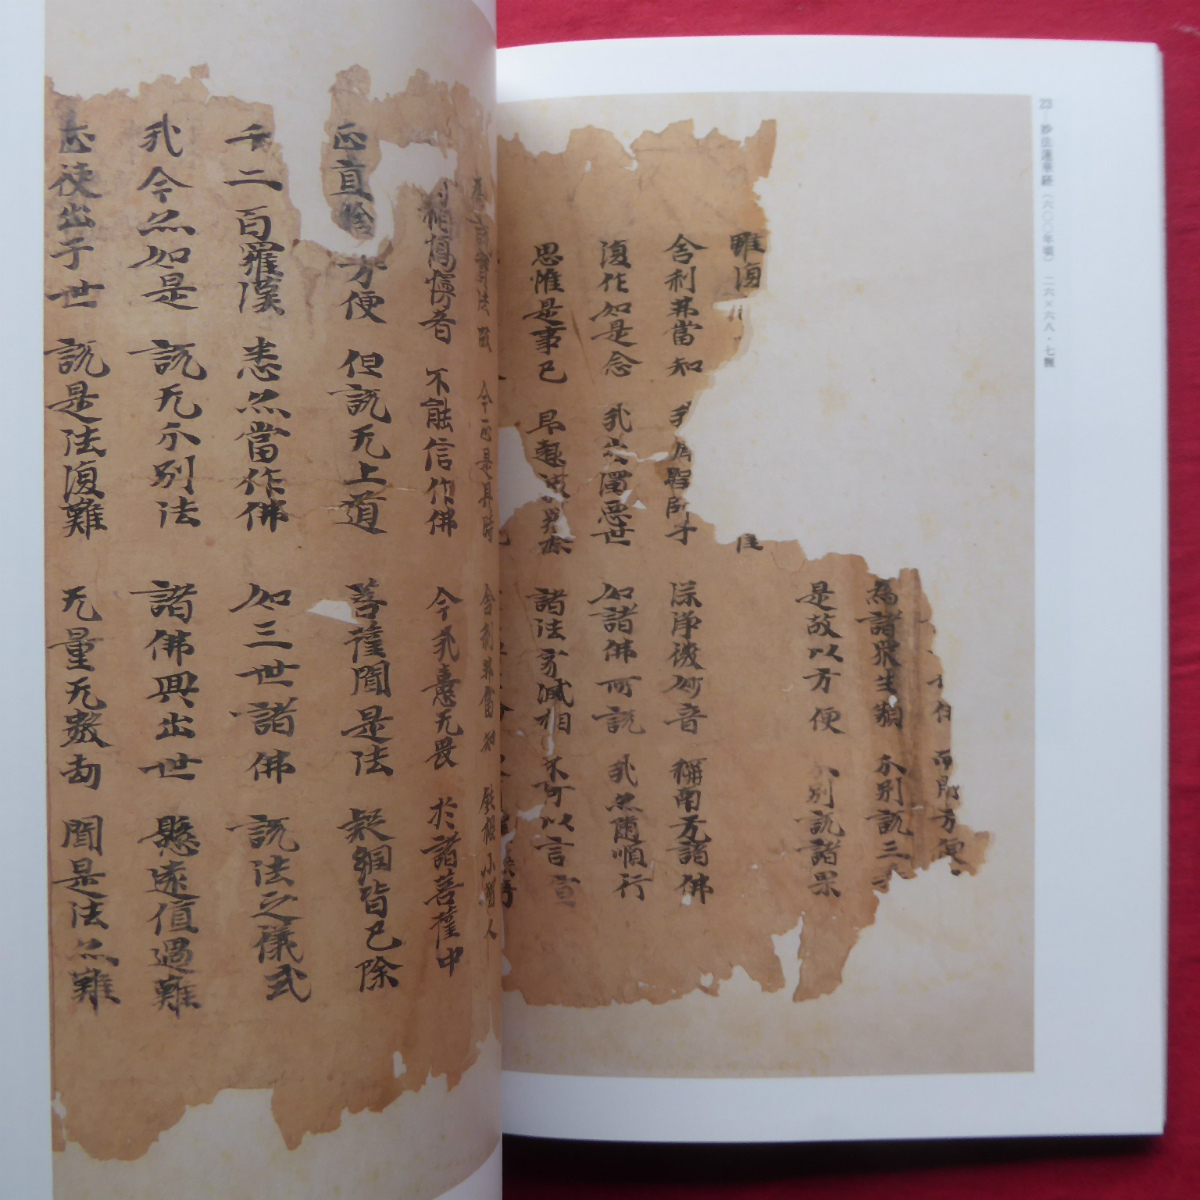 23—妙法蓮華経(六〇〇年頃) 二六×六八・七糎
方便
為諸衆生類 分別説三
是故以方便 分別説諸果
雖復
舍利弗當知 我 聖師子 深淨微妙音 稱南无諸佛
復作如是念 我出濁惡世 如諸佛所説 我亦隨順行
思惟是事已 即趣波羅奈 諸法寂滅相 不可以言宣
今正是其時 舍利弗當知 鈍根小智人
相憍慢者 不能信作佛 今我喜无畏 於諸菩薩中
正直捨方便 但説无上道 菩薩聞是法 疑網皆已除
千二百羅漢 悉亦當作佛 如三世諸佛 説法之儀式
我今亦如是 説无分別法 諸佛興出世 懸遠值遇難
正使出于世 説是法復難 无量无數劫 聞是法亦難